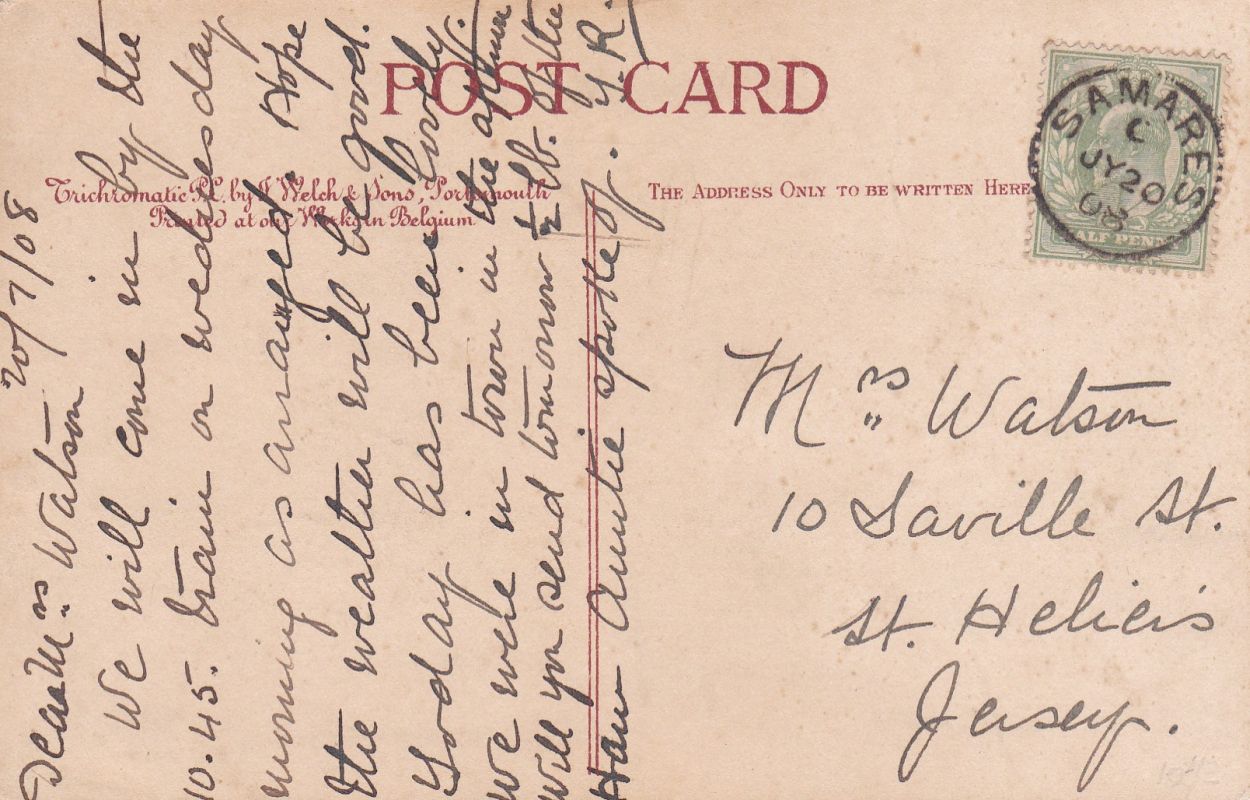 POST CARD
Trichromatic P.C. by J. Welch & Sons, Portsmouth
Printed at our Works in Belgium.
THE ADDRESS ONLY TO BE WRITTEN HERE
SAMARES
C
JY 20
08
HALF PENNY
20/7/08
Dear Mrs Watson
We will come in by the
10.45. train on wednesday
morning as arranged. Hope
the weather will be good.
Today has been lovely.
We were in town in the
will you send tomorrow ½ lb. of the
Ham Auntie spoke of. Y.R.
Mrs Watson
10 Saville St.
St. Helier's
Jersey.